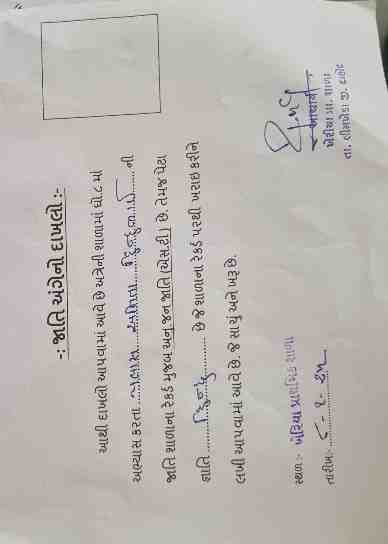 -: જાતિ અંગેનો દાખલો :-
આથી દાખલો આપવામાં આવે છે અત્રેની શાળામાં ધો.૮ માં
અભ્યાસ કરતા ની
જાતિ શાળાના રેકર્ડ મુજબ અનુ.જન જાતિ (એસ.ટી) છે. તેમજ પેટા
જ્ઞાતિ હિન્દુ છે જે શાળાના રેકર્ડ પરથી ખરાઇ કરીને
લખી આપવામાં આવે છે. જે સાચું અને ખરૂ છે.
સ્થળ :- ખેડિયા પ્રાથમિક શાળા
તારીખ:-
આચાર્ય
ખેડીયા પ્રા. શાળા
તા. લીમખેડા જી. દાહોદ